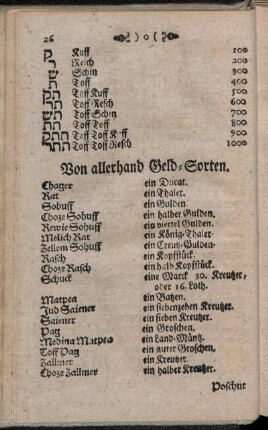 26 )o(
ק Kuff 100
ר Resch 200
ש Schin 300
ת Toff 400
תק Toff Kuff 500
תר Toff Resch 600
תש Toff Schin 700
תת Toff Toff 800
תתק Toff Toff Kuff 900
תתר Toff Toff Resch 1000
Von allerhand Geld-Sorten.
Chager ein Ducat.
Rat ein Thaler.
Sohuff ein Gulden
Choze Sohuff ein halber Gulden.
Rewie Sohuff ein viertel Gulden.
Melich Rat ein König-Thaler.
Zellem Sohuff ein Creutz-Gulden-
Rasch ein Kopfstück.
Choze Rasch ein halb Kopfstück.
Schuck eine Marck 30. Kreutzer,
oder 16. Loth.
Matpea ein Batzen.
Jud Saiener ein siebenzehen Kreutzer.
Saiener ein sieben Kreutzer.
Pag ein Groschen.
Medina Matpea ein Land-Müntz.
Toff Pag ein guter Groschen.
Zallmer ein Kreutzer.
Choze Zallmer ein halber Kreutzer.
Poschut